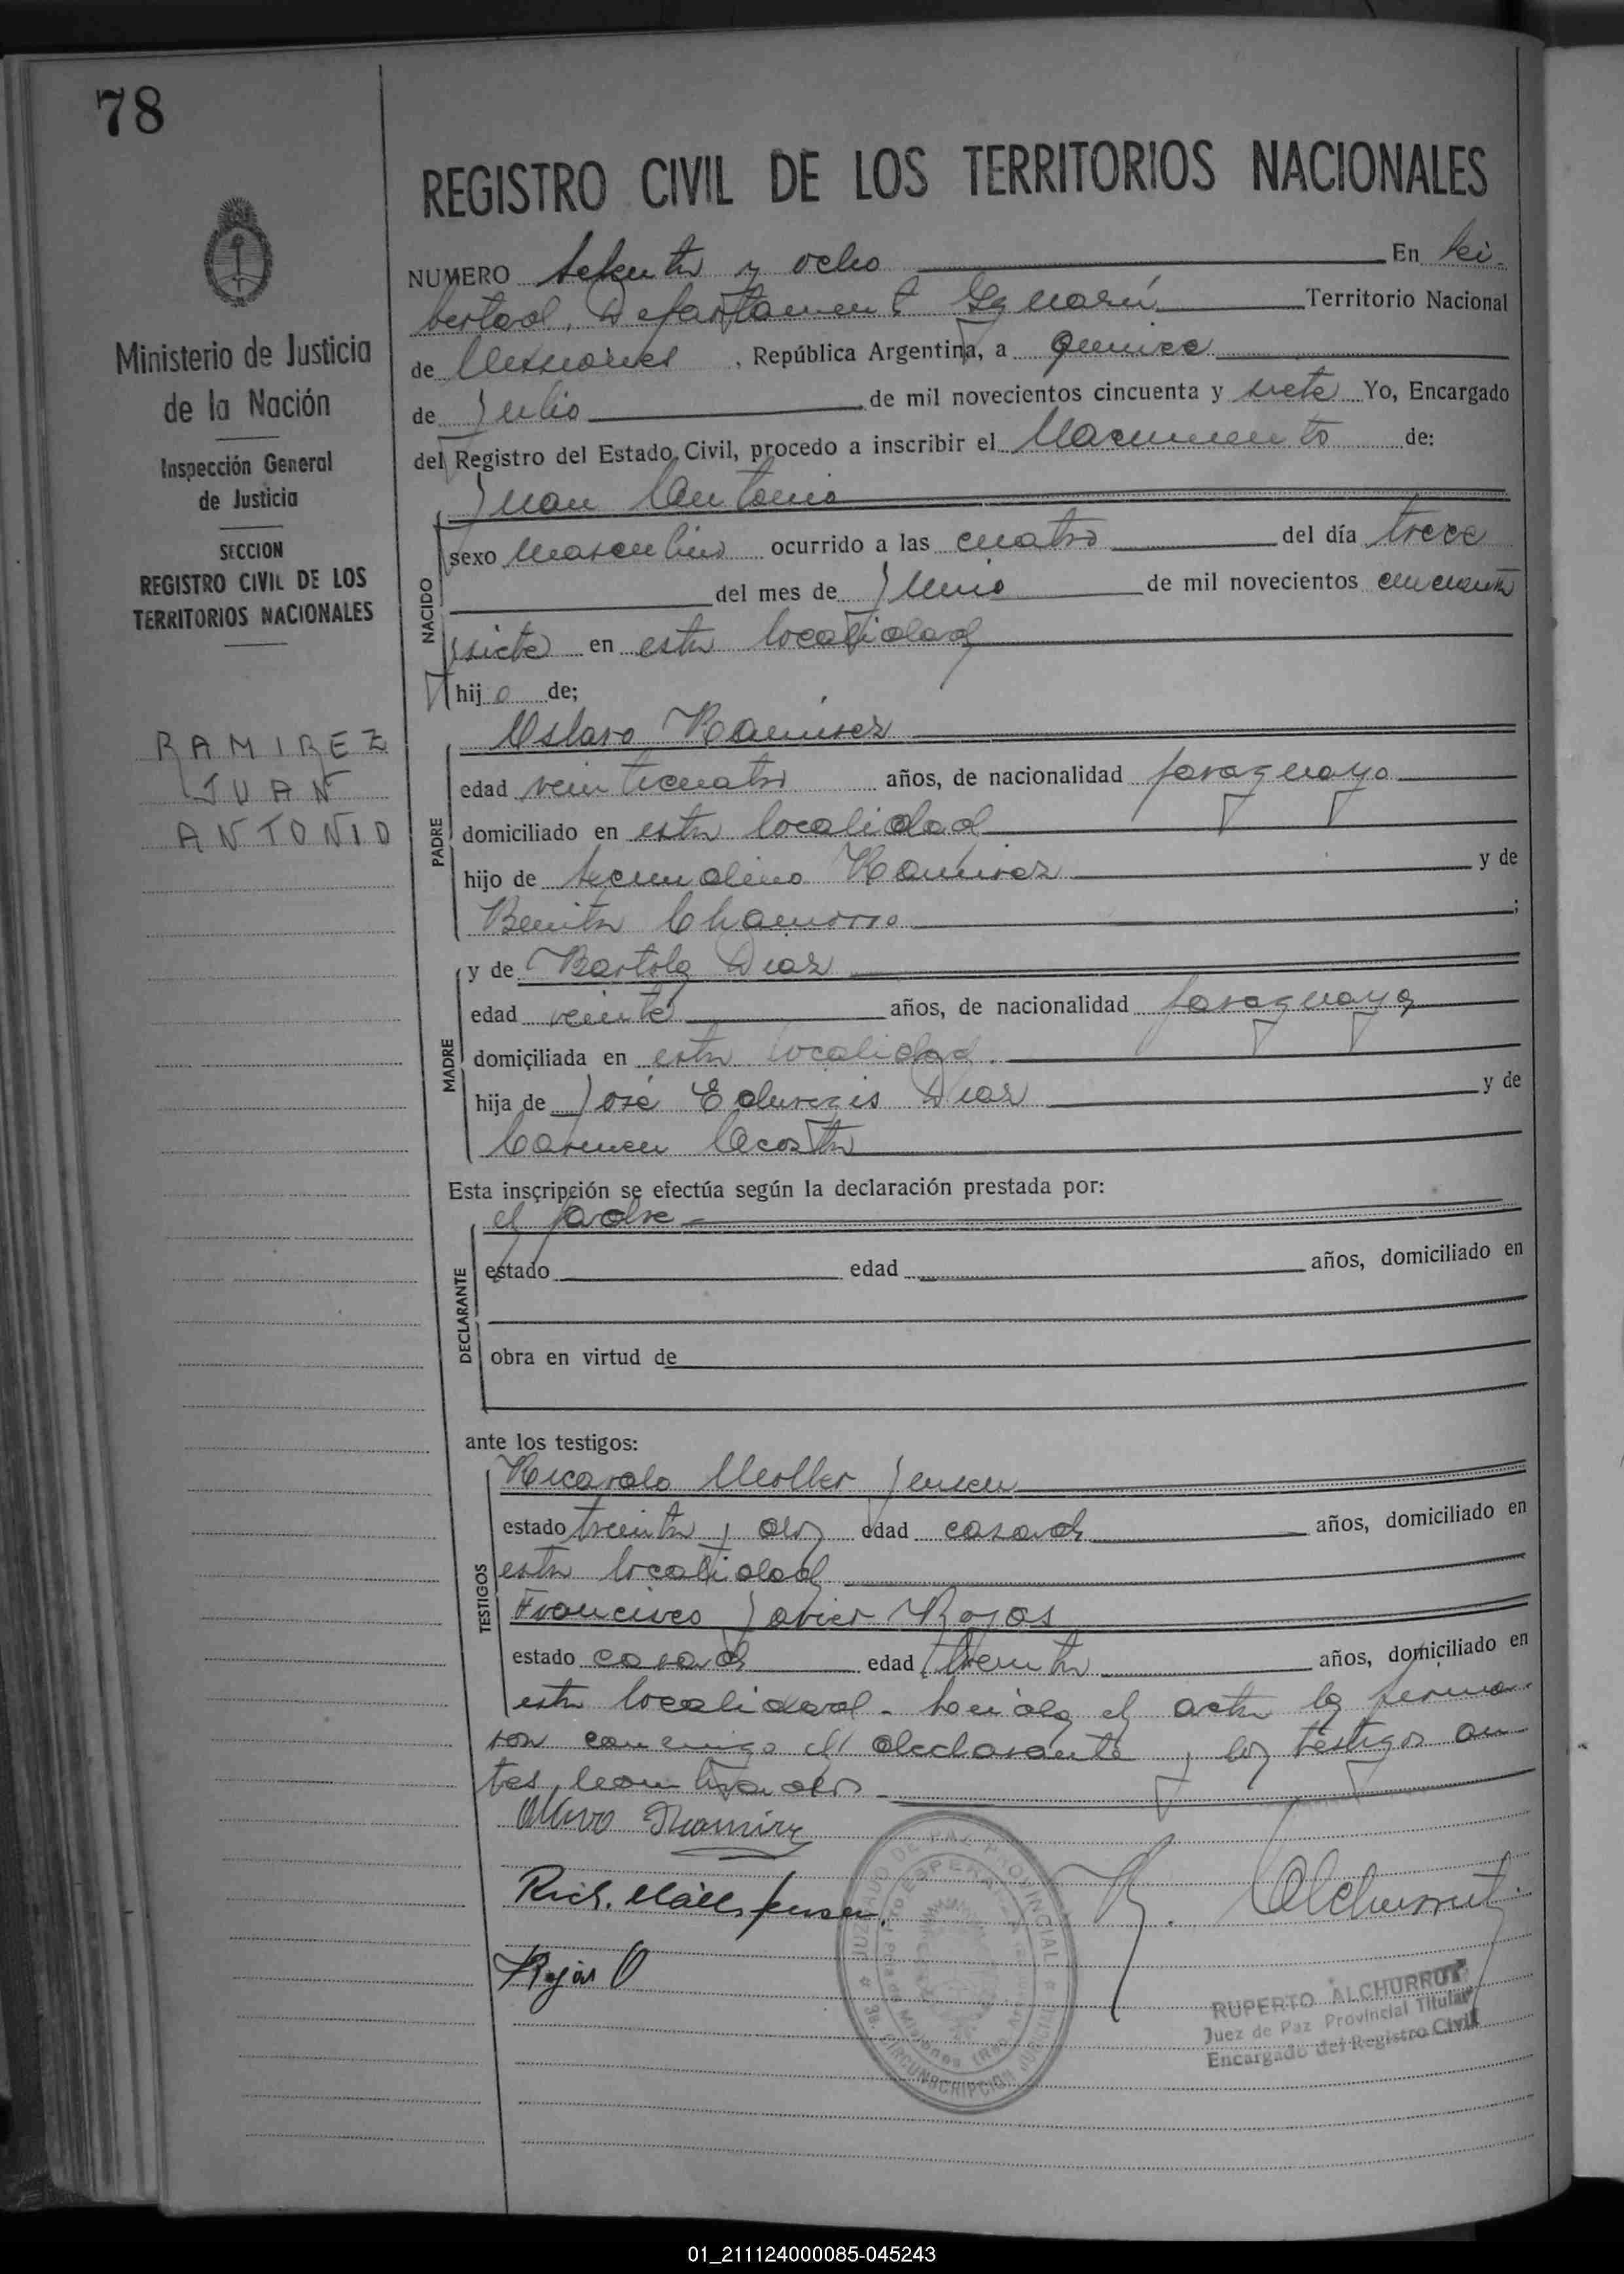 78
REGISTRO CIVIL DE LOS TERRITORIOS NACIONALES
Ministerio de Justicia
de la Nación
Inspección General
de Justicia
SECCION
REGISTRO CIVIL DE LOS
TERRITORIOS NACIONALES
RAMIREZ
JUAN
ANTONIO
NUMERO Setenta y ocho En Li-
bertad, Departamento Iguazú Territorio Nacional
de Misiones, República Argentina, a quince
de Julio de mil novecientos cincuenta y siete Yo, Encargado
del Registro del Estado Civil, procedo a inscribir el Nacimiento de:
Juan Antonio
NACIDO
sexo masculino ocurrido a las cuatro del día trece
del mes de Junio de mil novecientos cincuenta
y siete en esta localidad
hijo de;
PADRE
Oslavo Ramirez
edad veinticuatro años, de nacionalidad paraguayo
domiciliado en esta localidad
hijo de Secundino Ramirez y de
Benita Chamorro;
MADRE
y de Bartola Diaz
edad veinte años, de nacionalidad paraguaya
domiciliada en esta localidad.
hija de José Eduvigis Diaz y de
Carmen Acosta
Esta inscripción se efectúa según la declaración prestada por:
DECLARANTE
el padre
estado edad años, domiciliado en
obra en virtud de
ante los testigos:
TESTIGOS
Ricardo Moller Jensen
estado treinta y dos edad casado años, domiciliado en
esta localidad
Francisco Javier Rojas
estado casado edad treinta años, domiciliado en
esta localidad - Leida el acta la firma-
ron conmigo el declarante y los testigos an-
tes nombrados
Olavo Ramirez
Rich. Möller Jensen.
R. Alchurrut
Rojas
JUZGADO DE PAZ PROVINCIAL
3a. CIRCUNSCRIPCION JUDICIAL
PTO ESPERANZA
Misiones (Rep. Arg.)
RUPERTO ALCHURRUT
Juez de Paz Provincial Titular
Encargado del Registro Civil
01_211124000085-045243